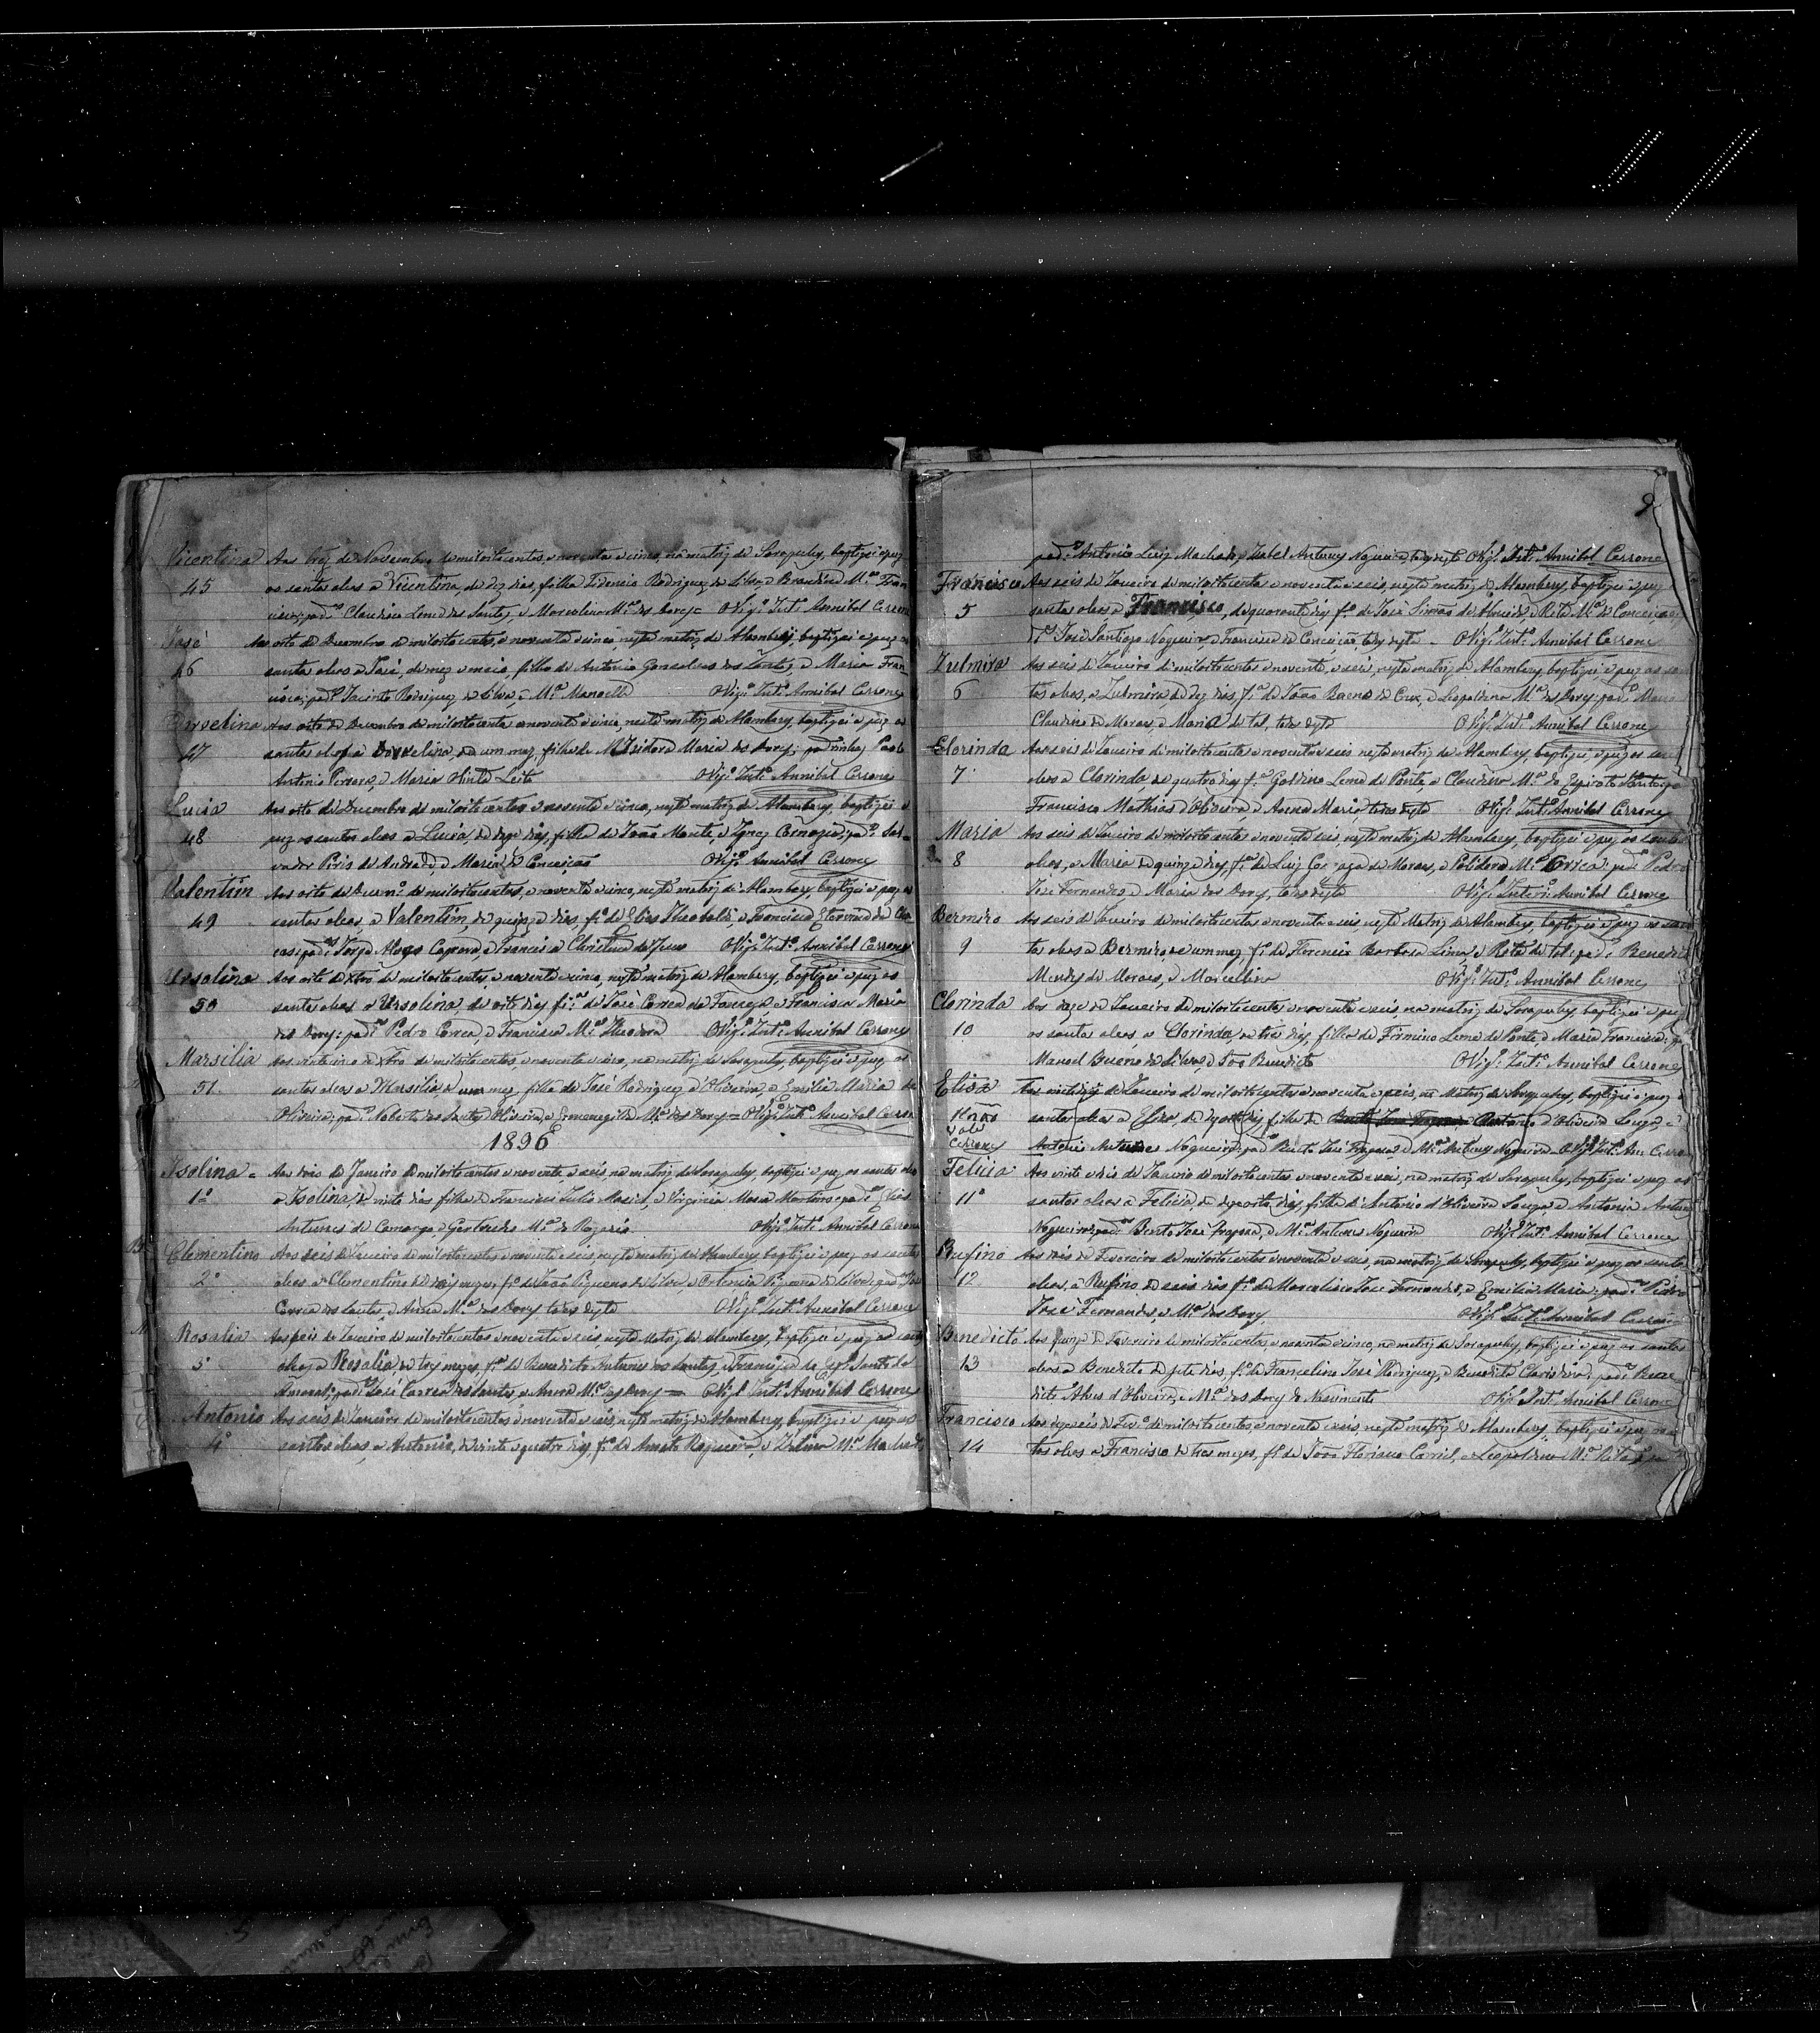 Vicentina Aos trez de Novembro de mil oito centos e noventa e cinco, na matriz de Sarapuhy, baptizei e puz
45 os santos oleos a Vicentina, de dez dias, filha Fidencio Rodrigues da Silva e Brandina M.ª Fran
cisca; pad.os Claudino Leme dos Santos, e Marcolina M.ª das Dores = O Vig.º Int.º Annibal Cerrone
José Aos oito de Dezembro de mil oito centos, e noventa e cinco, nesta matriz de Alambary, baptizei e puz os
46 santos oleos a José, de mez e meio, filho de Antonio Gonsalves dos Santos, e Maria Fran=
cisca; pad.os Jacinto Rodrigues da Silva, e M.ª Manoella O Vig.º Int.º Annibal Cerrone
Dorvelina Aos oito de Dezembro de mil oito centos e noventa e cinco, nesta matriz de Alambary, baptizei e puz os
47 santos oleos a Dorvelina, de um mez, filha de Isidora Maria das Dores; padrinhos Paulo
Antonio Vieira, e Maria Leite O Vig.º Int.º Annibal Cerrone
Lucia Aos oito de Dezembro de mil oito centos e noventa e cinco, nesta matriz de Alambary, baptizei e
48 puz os santos oleos a Lucia, de dez dias, filha de João Monte, e Ignez; pad.os Sal=
vador Pires de Andrade, e Maria da Conceição O Vig.º Annibal Cerrone
Valentim Aos oito de Dezem.º de mil oito centos, e noventa e cinco, nesta matriz de Alambary, baptizei e puz os
49 santos oleos, a Valentim, de quinze dias, f.º de Elias Theobaldo, e Francisca
pad.os Jorge Alves, e Francisca Christina de Jesus O Vig.º Int.º Annibal Cerrone
Ursolina Aos oito de Xbro de mil oito centos, e noventa e cinco, nesta matriz de Alambary, baptizei e puz os
50 santos oleos a Ursolina, de oito dias, f.ª de José Correa da Fonseca, e Francisca Maria
das Dores; pad.os Pedro Correa, e Francisca M.ª Theodora O Vig.º Int.º Annibal Cerrone
Marsilia Aos vinte cinco de Xbro de mil oito centos, e noventa e cinco, na matriz de Sarapuhy, baptizei e puz os
51. santos oleos a Marsilia, de um mez, filha de José Rodrigues d'Oliveira, e Emilia Maria de
Oliveira; pad.os Roberto dos Santos Oliveira, e Ermenegilda M.ª das Dores = O Vig.º Int.º Annibal Cerrone
1896
Isolina = Aos dois de Janeiro de mil oito centos e noventa, e seis, na matriz de Sarapuhy, baptizei e puz os santos oleos
1º a Isolina, de vinte dias filha de Francisco, e Virginia Maria; pad.os Elias
Antunes de Camargo, e Gertrudes M.ª do Rozario O Vig.º Int.º Annibal Cerrone
Clementino Aos seis de Janeiro de mil oito centos e noventa e seis, nesta matriz de Alambary baptizei e puz os santos
2º oleos a Clementino de dois mezes, f.º de João Pequeno da Silva; pad.os José
Correa dos Santos, e Anna M.ª das Dores todos desta O Vig.º Int.º Annibal Cerrone
Rosalia Aos seis de Janeiro de mil oito centos e noventa e seis, nesta Matriz de Alambary, baptizei e puz os santos
3º oleos a Rosalia, de trez mezes, f.ª de Benedicto Antunes dos Santos, e Francisca do Esp.º Santo do
Amaral; pad.os José Correa dos Santos, e Anna M.ª das Dores = O Vig.º Int.º Annibal Cerrone
Antonio Aos seis de Janeiro de mil oito centos e noventa e seis, nesta matriz de Alambary, baptizei e puz os
4º santos oleos, a Antonio, de vinte e quatro dias, f.º de Amaro Nogueira, e Delfina M.ª Machado
pad.os Antonio Luiz Machado, e Izabel Antunes Nogueira, todos desta O Vig.º Int.º Annibal Cerrone
Francisco Aos seis de Janeiro de mil oito centos e noventa e seis, nesta matriz de Alambary, baptizei e puz os
5 santos oleos a Francisco, de quarenta dias f.º de José Simão de Almeida, e Rita M.ª da Conceição
p.os José Santiago Nogueira, e Francisca da Conceição, todos desta - O Vig.º Int.º Annibal Cerrone
Zulmira Aos seis de Janeiro de mil oito centos e noventa, e seis, nesta matriz de Alambary baptizei e puz os san
6 tos oleos, a Zulmira, de dez dias, f.ª de João Bueno da Cruz, e Leopoldina M.ª das Dores; pad.os Mario
Claudino de Moraes, e Maria de tal, todos desta O Vig.º Int.º Annibal Cerrone
Clorinda Aos seis de Janeiro de mil oito centos e noventa e seis nesta matriz de Alambary, baptizei e puz os santos
7. oleos a Clorinda, de quatro dias f.ª Galdino Leme da Ponte, e Claudina M.ª do Espirito Santo; pa
Francisco Mathias d'Oliveira, e Anna Maria, todos desta O Vig.º Int.º Annibal Cerrone
Maria Aos seis de Janeiro de mil oito centos e noventa e seis, nesta matriz de Alambary, baptizei e puz os santos
8 oleos, a Maria de quinze dias, f.ª de Luiz de Moraes, e Polidora M.ª Correa; pad.os Pedro
José Fernandes, e Maria das Dores, todos desta O Vig.º Interº. Annibal Cerrone
Bermiro Aos seis de Janeiro de mil oito centos e noventa e seis nesta Matriz de Alambary, baptizei e puz os san
9 tos oleos a Bermiro de um mez f.º de Florencio Barbosa Lima, e Rita de tal; pad.os Benedicto
Mendes de Moraes, e Marcolina O Vig.º Int.º Annibal Cerrone
Clorinda Aos doze de Janeiro de mil oito centos e noventa e seis, na matriz de Sarapuhy, baptizei e puz
10 os santos oleos, a Clorinda, de tres dias, filha de Firmino Leme da Ponte, e Maria Francisca; pa
Manoel Bueno da Silva, e Benedicta O Vig.º Int.º Annibal Cerrone
Elisa Aos vinte de Janeiro de mil oito centos e noventa e seis, na Matriz de Sarapuhy, baptizei e puz os
11 não santos oleos a Elisa, de dezoito dias, filha de Bento José Fragoso Antonio d'Oliveira Souza e
vale
Cerrone Antonia Antunes Nogueira; pad.os Bento José Fragoso, e M.ª Antunes Nogueira O Vig.º Int.º Ann. Cerrone
Felicia Aos vinte e seis de Janeiro de mil oito centos e noventa e seis, na matriz de Sarapuhy, baptizei e puz os
11º santos oleos a Felicia, de dezoito dias, filha de Antonio d'Oliveira Souza e Antonia Antunes
Nogueira; pad.os Bento José Fragoso, e M.ª Antunes Nogueira O Vig.º Int.º Annibal Cerrone
Rufino Aos dois de Fevereiro de mil oito centos e noventa e seis, na matriz de Sarapuhy, baptizei e puz os santos
12 oleos, a Rufino, de seis dias f.º de Marcolino José Fernandes, e Emilia Maria; pad.os Pedro
José Fernandes, e M.ª das Dores O Vig.º Int.º Annibal Cerrone
Benedicto Aos quinze de Fevereiro de mil oito centos e noventa e cinco, na matriz de Sarapuhy, baptizei e puz os santos
13 oleos a Benedicto de sete dias, f.º de Francelino José Rodrigues, e Benedicta; pad.os Bene
dicto Alves d'Oliveira, e M.ª das Dores do Nascimento O Vig.º Int.º Annibal Cerrone
Francisco Aos dezeseis de Fev.º de mil oito centos, e noventa e seis, nesta matriz de Alambary, baptizei e puz os san
14 tos oleos a Francisco de tres mezes, f.º de João Floriano, e Leopoldina M.ª Rita;